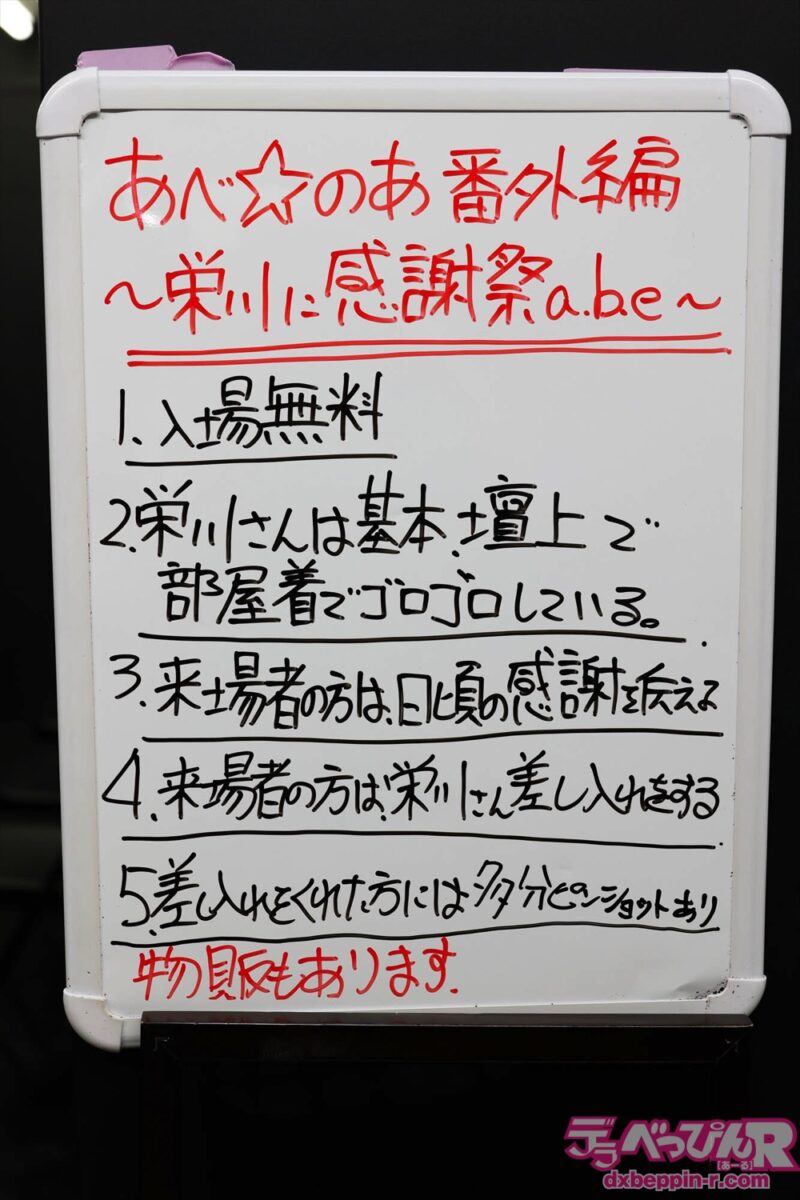 あべ☆のあ 番外編
～栄川に感謝祭a.b.e～
1、入場無料
2、栄川さんは基本、壇上で
部屋着でゴロゴロしている。
3、来場者の方は、日頃の感謝を伝える
4、来場者の方は、栄川さん差し入れをする
5、差し入れをくれた方には多分ピンショットあり
物販もあります。
デラべっぴんR
[あーる]
dxbeppin-r.com